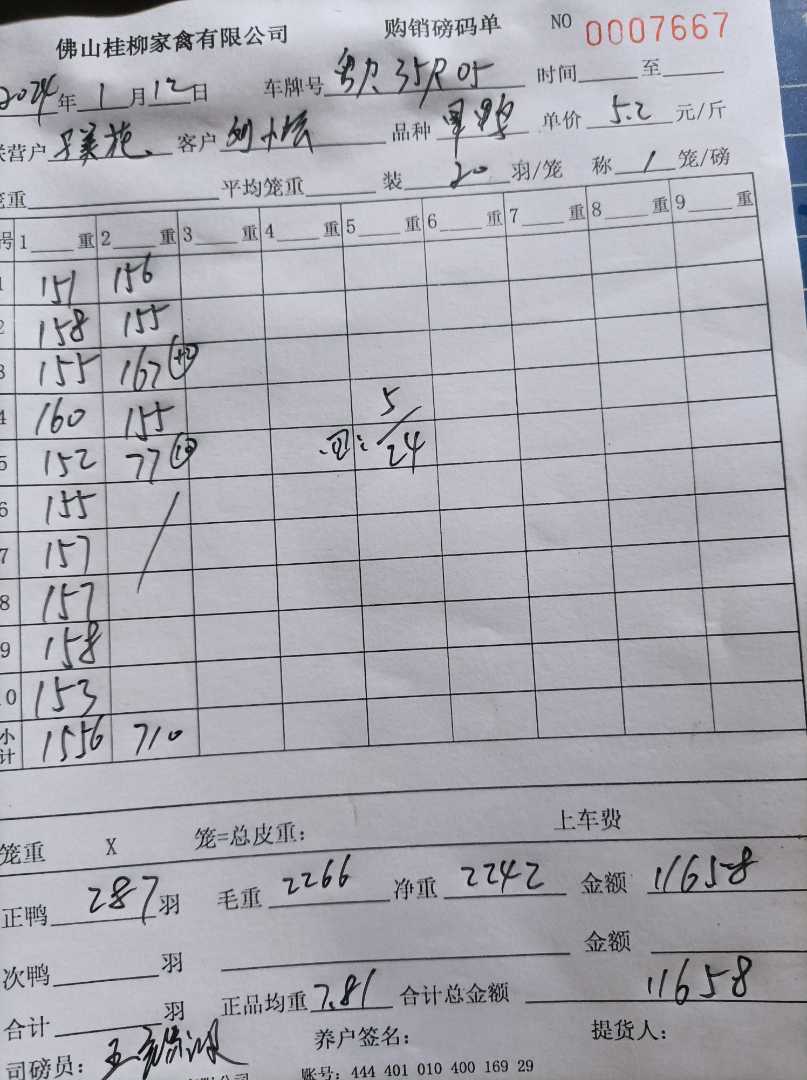 佛山桂柳家禽有限公司 购销磅码单 NO 0007667
2024年1月12日 车牌号 35R05 时间 至
营户 客户 品种 单价 5.2 元/斤
重 平均笼重 装 20 羽/笼 称 1 笼/磅
号 1 重 2 重 3 重 4 重 5 重 6 重 7 重 8 重 9 重
1 151 156
2 158 155
3 155 167 (+2)
4 160 155 5
5 152 77 回: 24
6 155
7 157
8 157
9 158
10 153
小计 1556 710
笼重 X 笼=总皮重: 上车费
正鸭 287 羽 毛重 2266 净重 2242 金额 11658
次鸭 羽 金额
合计 羽 正品均重 7.81 合计总金额 11658
司磅员: 养户签名: 提货人:
账号: 444 401 010 400 169 29